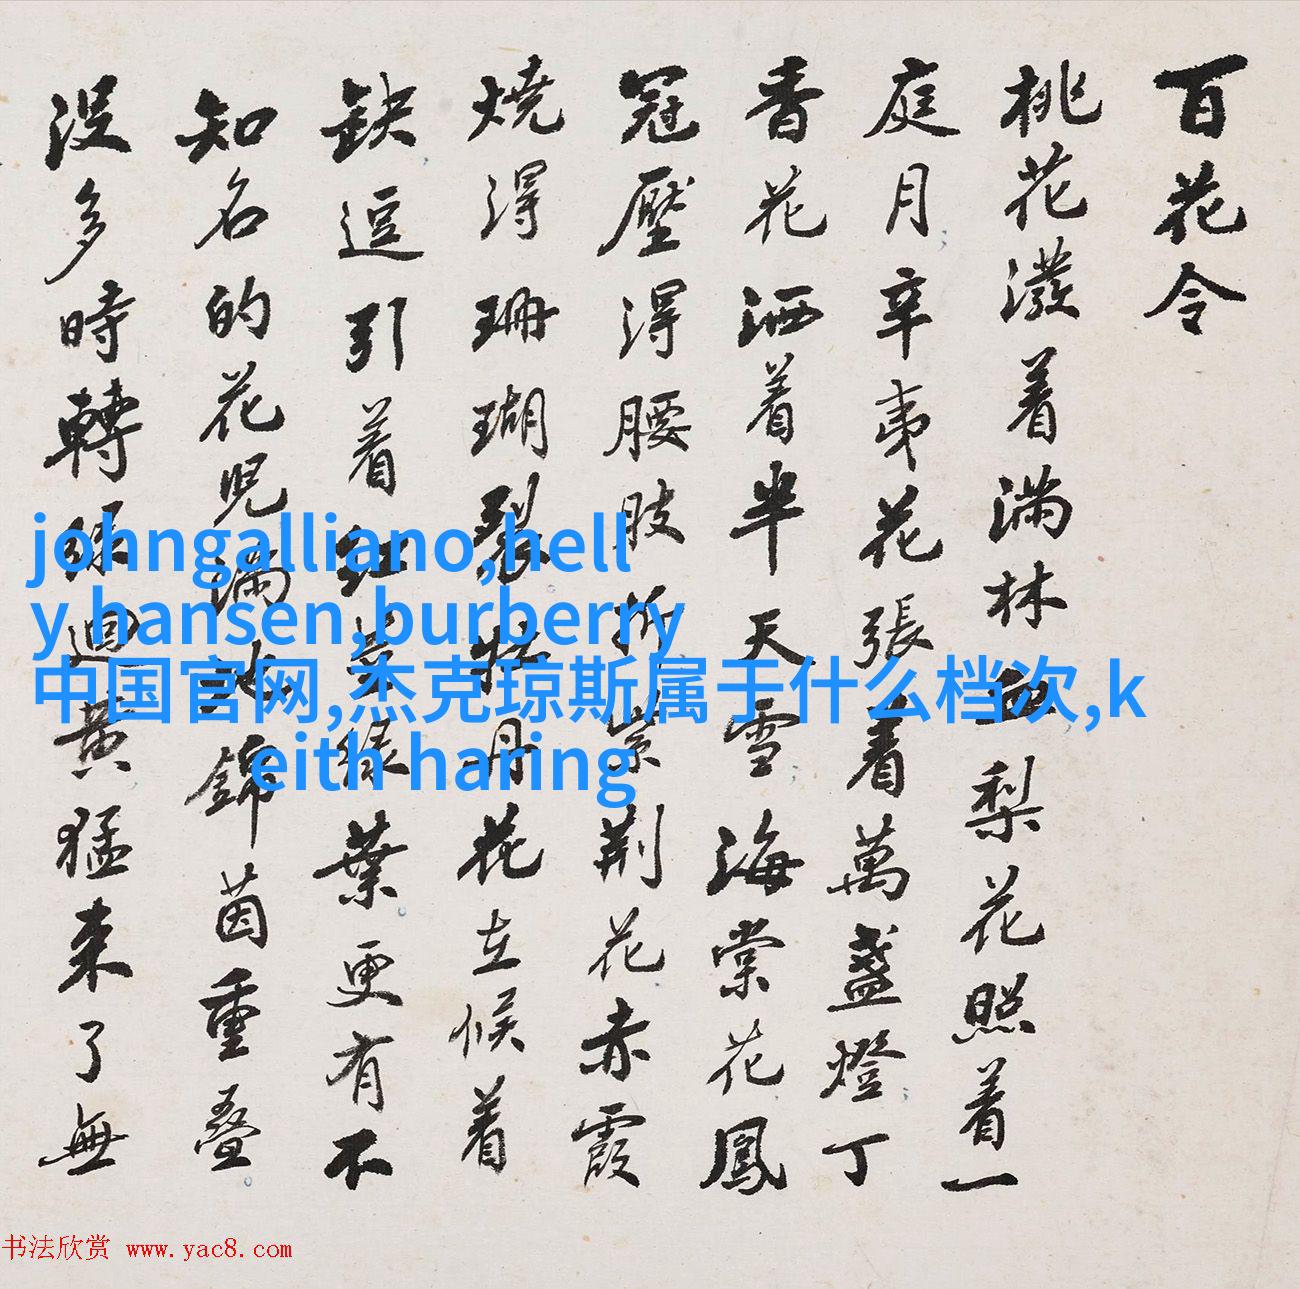 百花令
桃花潑着滿林血梨花照着一
庭月辛夷花張着萬盞燈丁
香花洒着半天雪海棠花鳳
冠壓得腰肢折紫荊花赤霞
燒得珊瑚裂牡丹花立候着
缺逗引着紅緑葉更有不
知名的花兒滿地錦茵重疊
没多時轉緑迴黄猛来了無
johngalliano,hell
y hansen,burberry
中国官网,杰克琼斯属于什么档次,k
eith haring
书法欣赏 www.yac8.com